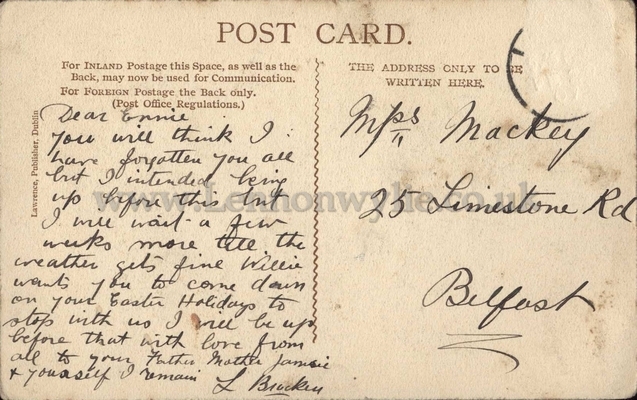 POST CARD.
For INLAND Postage this Space, as well as the
Back, may now be used for Communication.
For FOREIGN Postage the Back only.
(Post Office Regulations.)
THE ADDRESS ONLY TO BE
WRITTEN HERE.
Lawrence, Publisher, Dublin
Dear Ennie
you will think I
have forgotten you all
but I intended being
up before this but
I will wait a few
weeks more till the
weather gets fine Willie
wants you to come down
on your Easter Holidays to
stop with us I will be up
before that with love from
all to your Father Mother Jamsie
& yourself I remain L Bracken
Mrs Mackey
25 Limestone Rd
Belfast